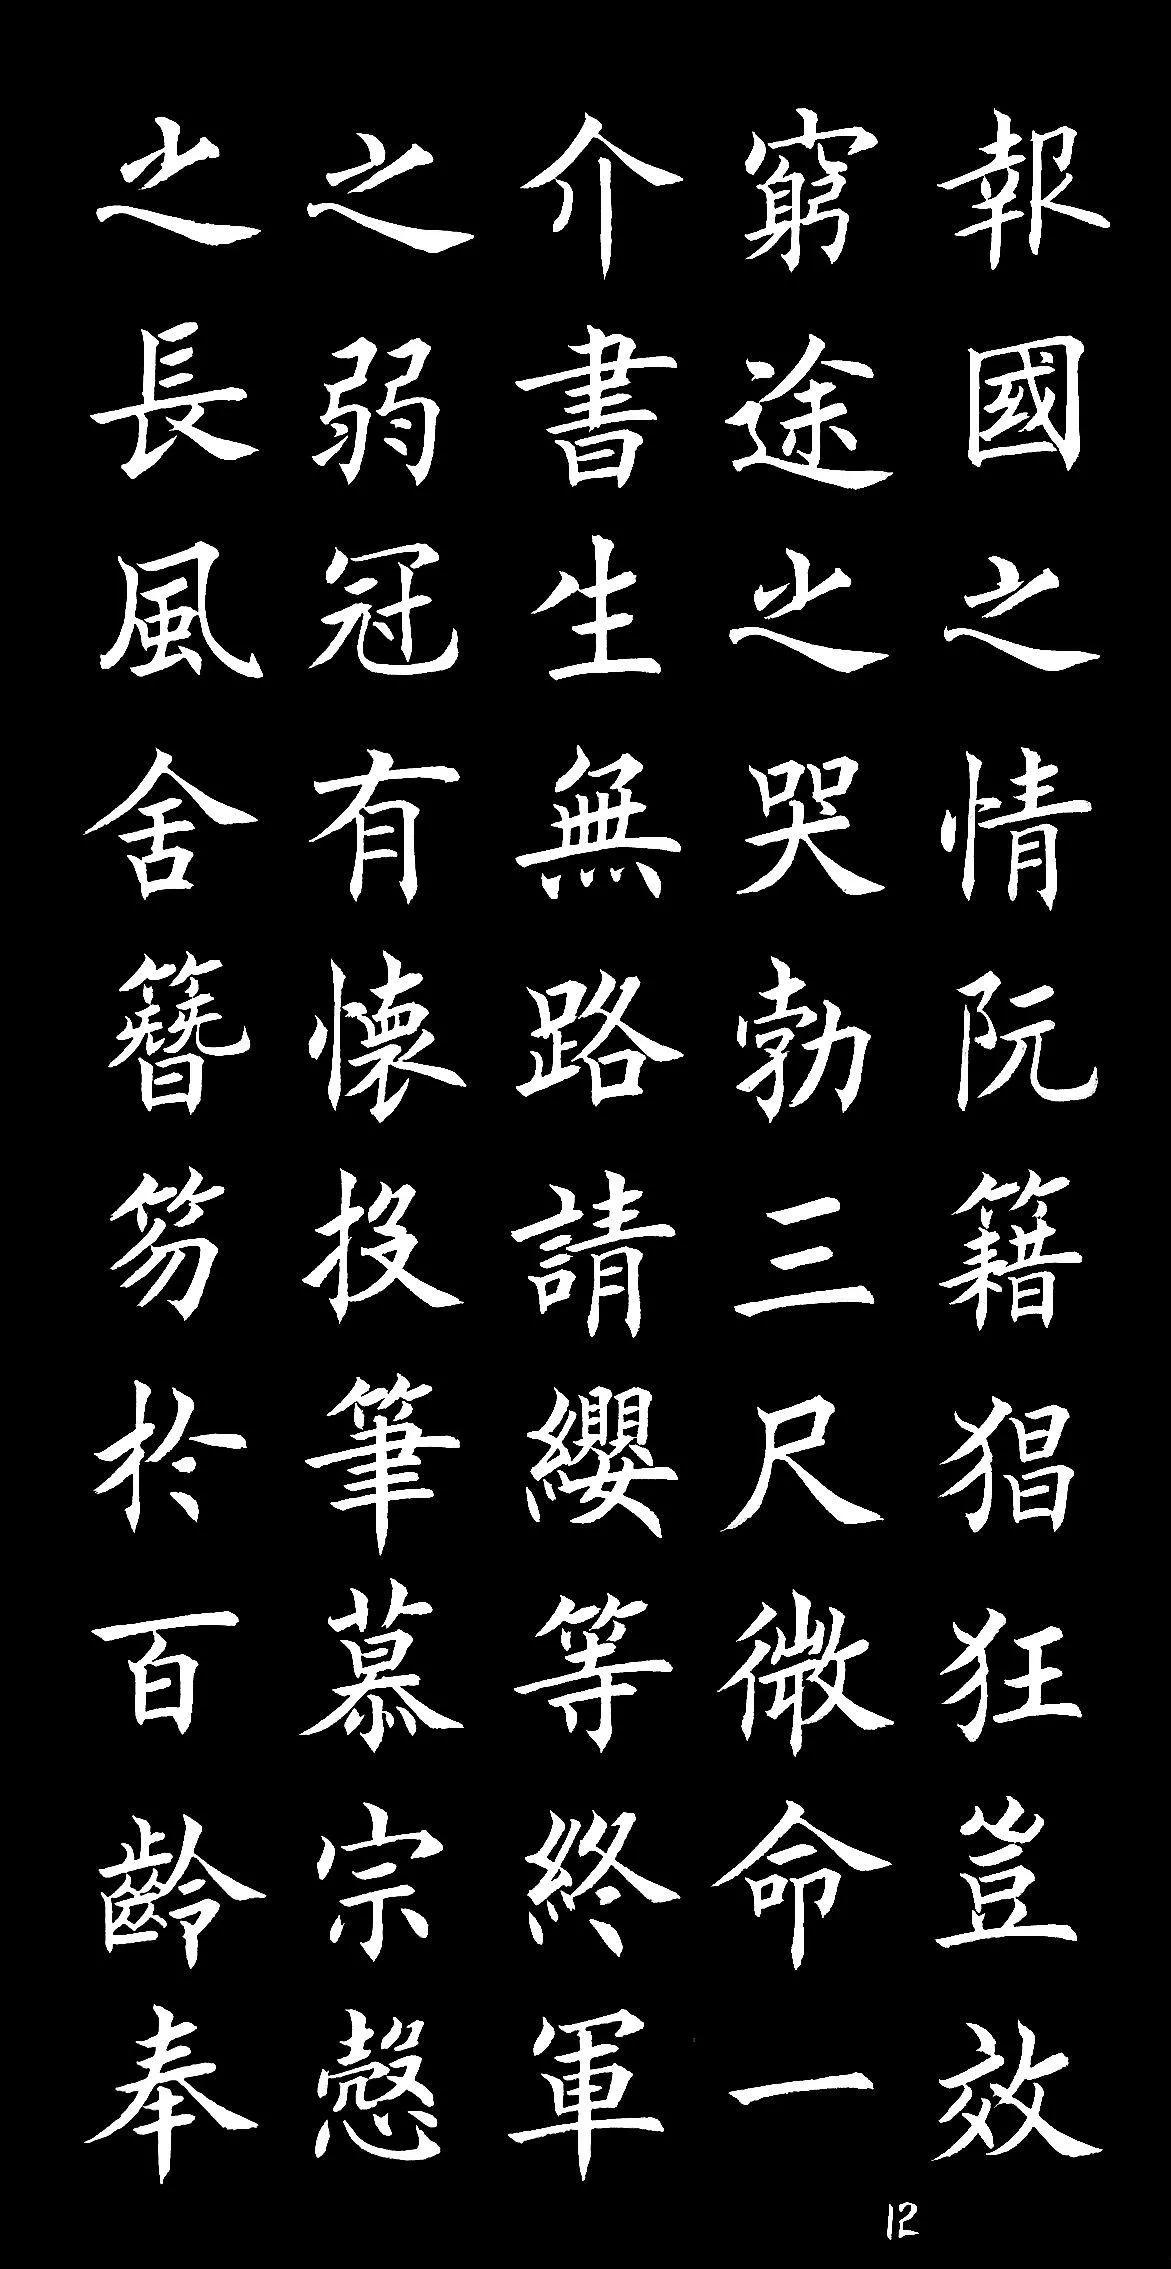 報國之情阮籍猖狂豈效
窮途之哭勃三尺微命一
介書生無路請纓等終軍
之弱冠有懷投筆慕宗愨
之長風舍簪笏於百齡奉
12